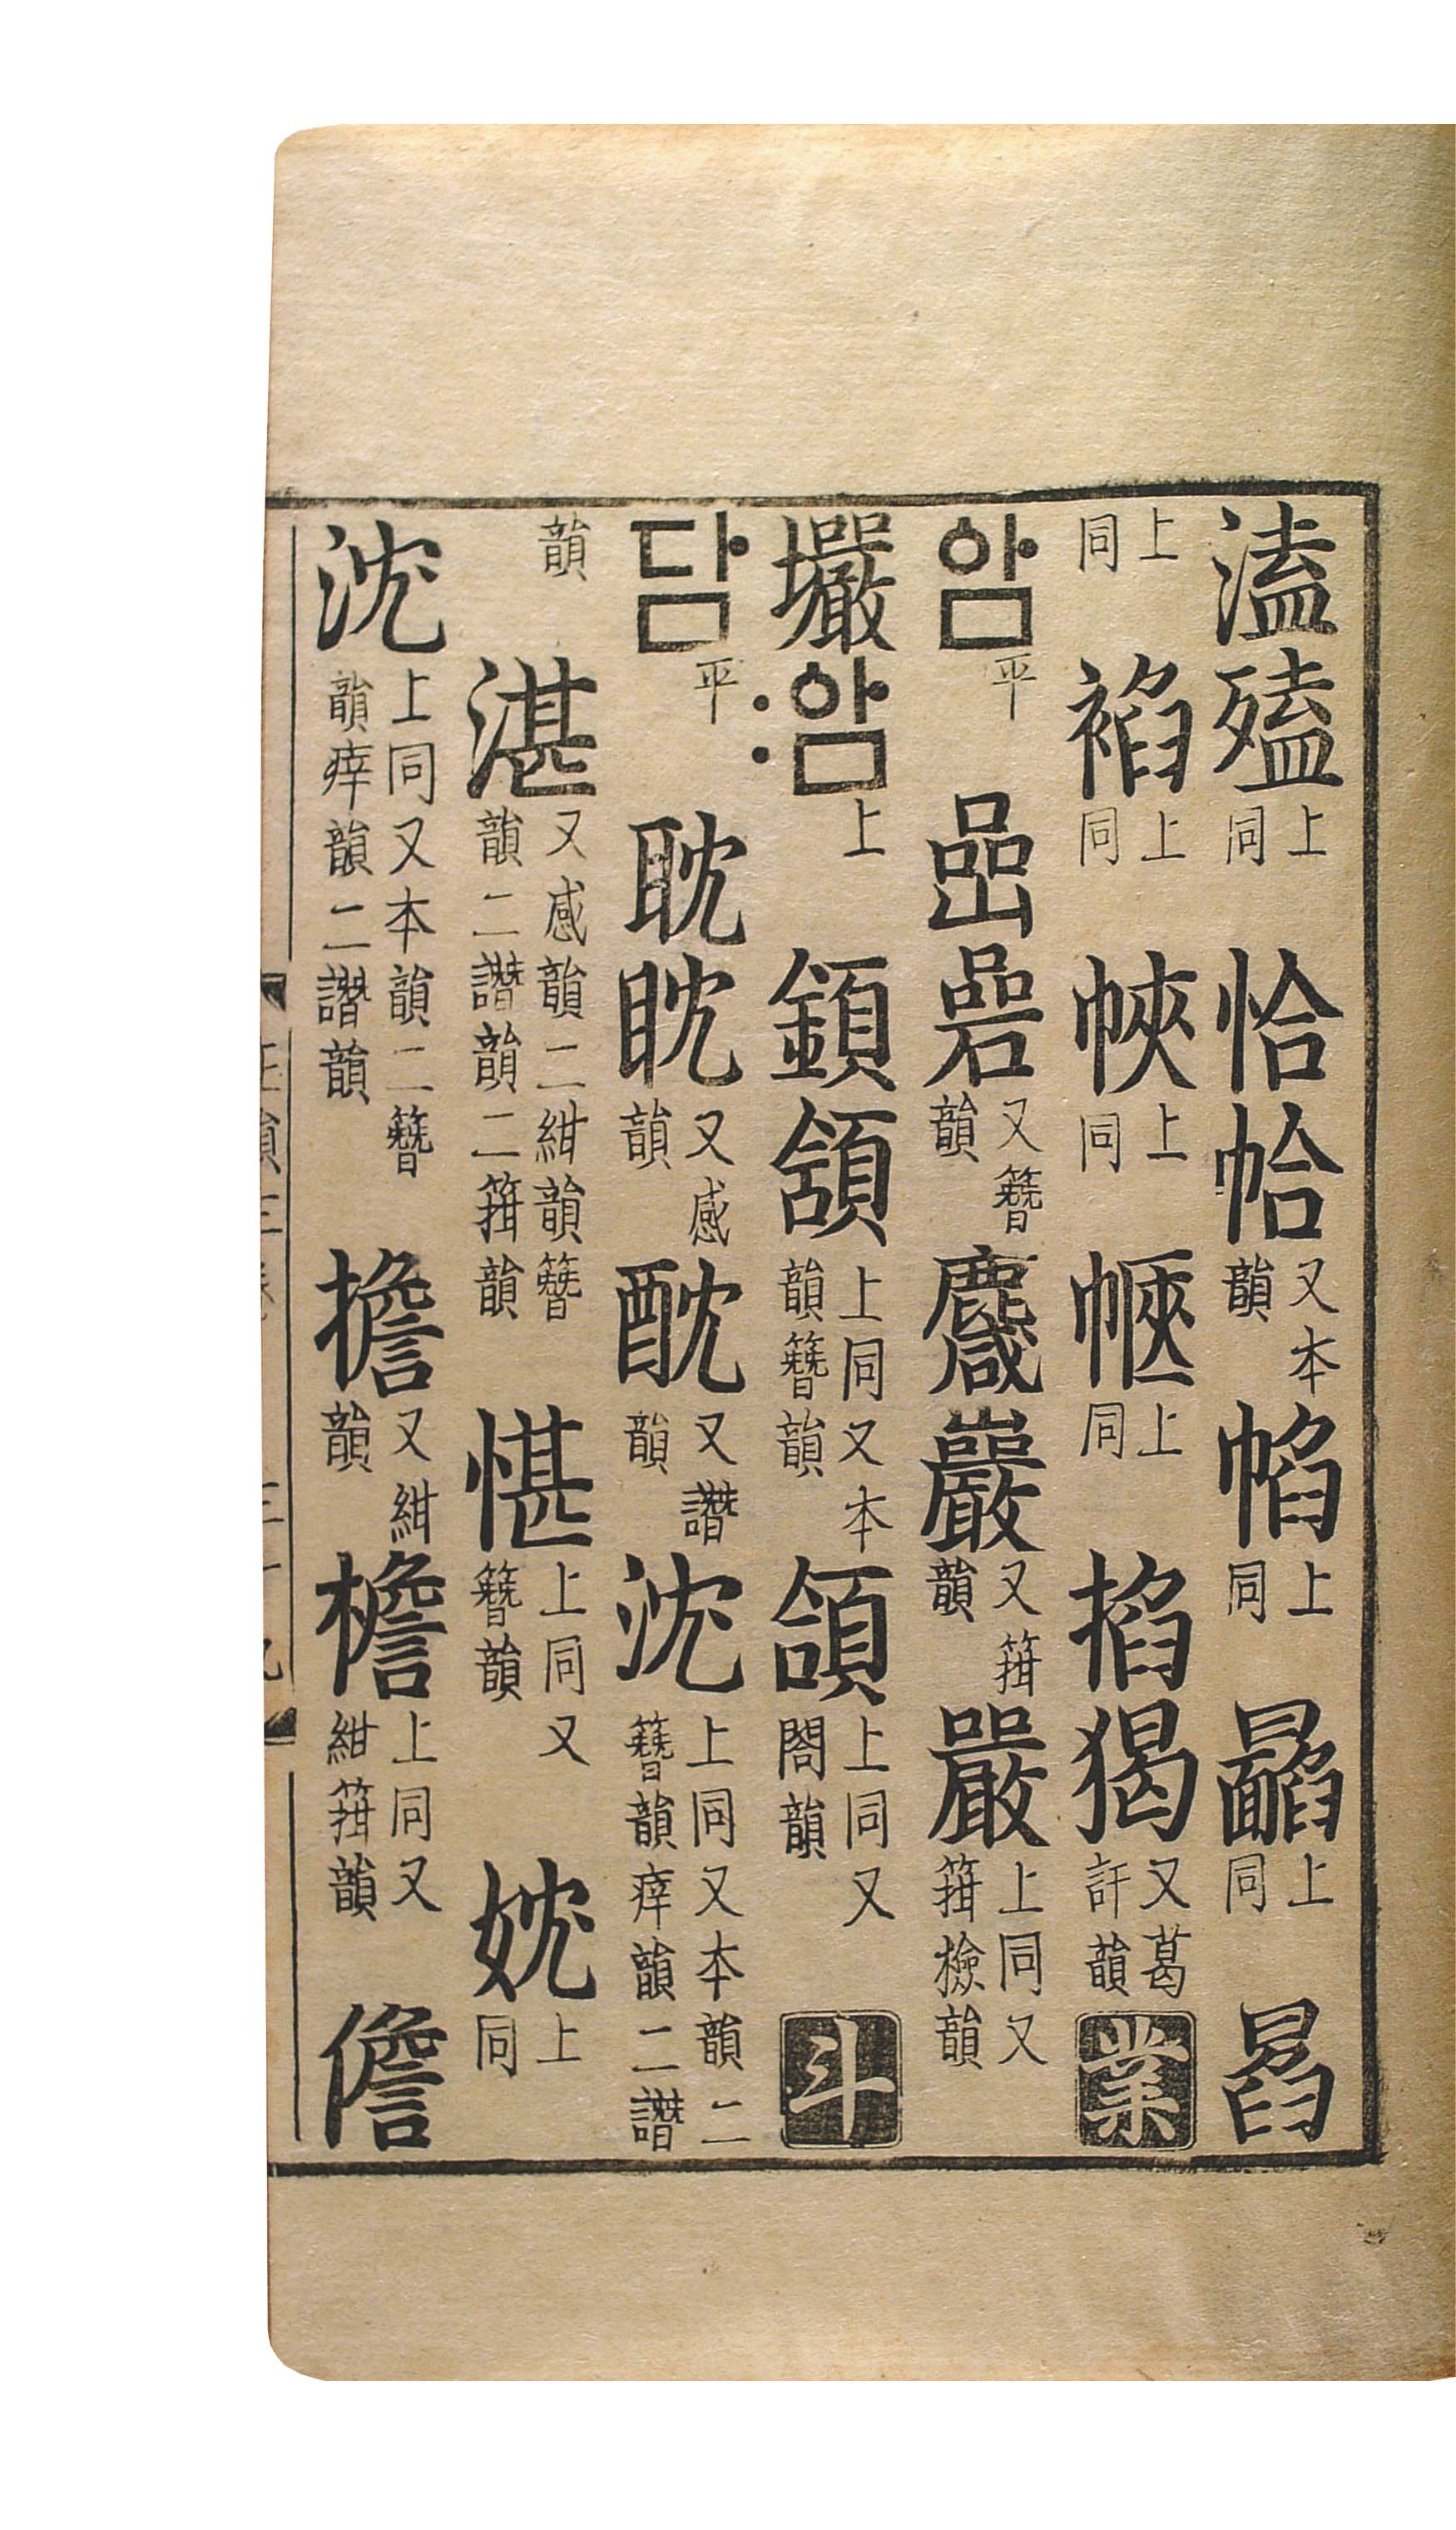 溘𣩄上同 恰帢又本韻 㡊上同 上同
上同 上同 㡇上同 上同 掐猲又葛訐韻 業
ᅌᅡᆷ平 嵒碞又簪韻 麙巖又箝韻 嚴上同又箝檢韻
壧 〯ᅌᅡᆷ上 顉頷上同又本韻簪韻 頜上同又閤韻 斗
담平 耽眈又感韻 酖又譖韻 沈上同又本韻二簪韻㾕韻二譖
韻 湛又感韻二紺韻簪韻二譖韻二箝韻 愖上同又簪韻 妉上同
沈上同又本韻二簪韻㾕韻二譖韻 擔又紺韻 檐上同又紺箝韻 儋